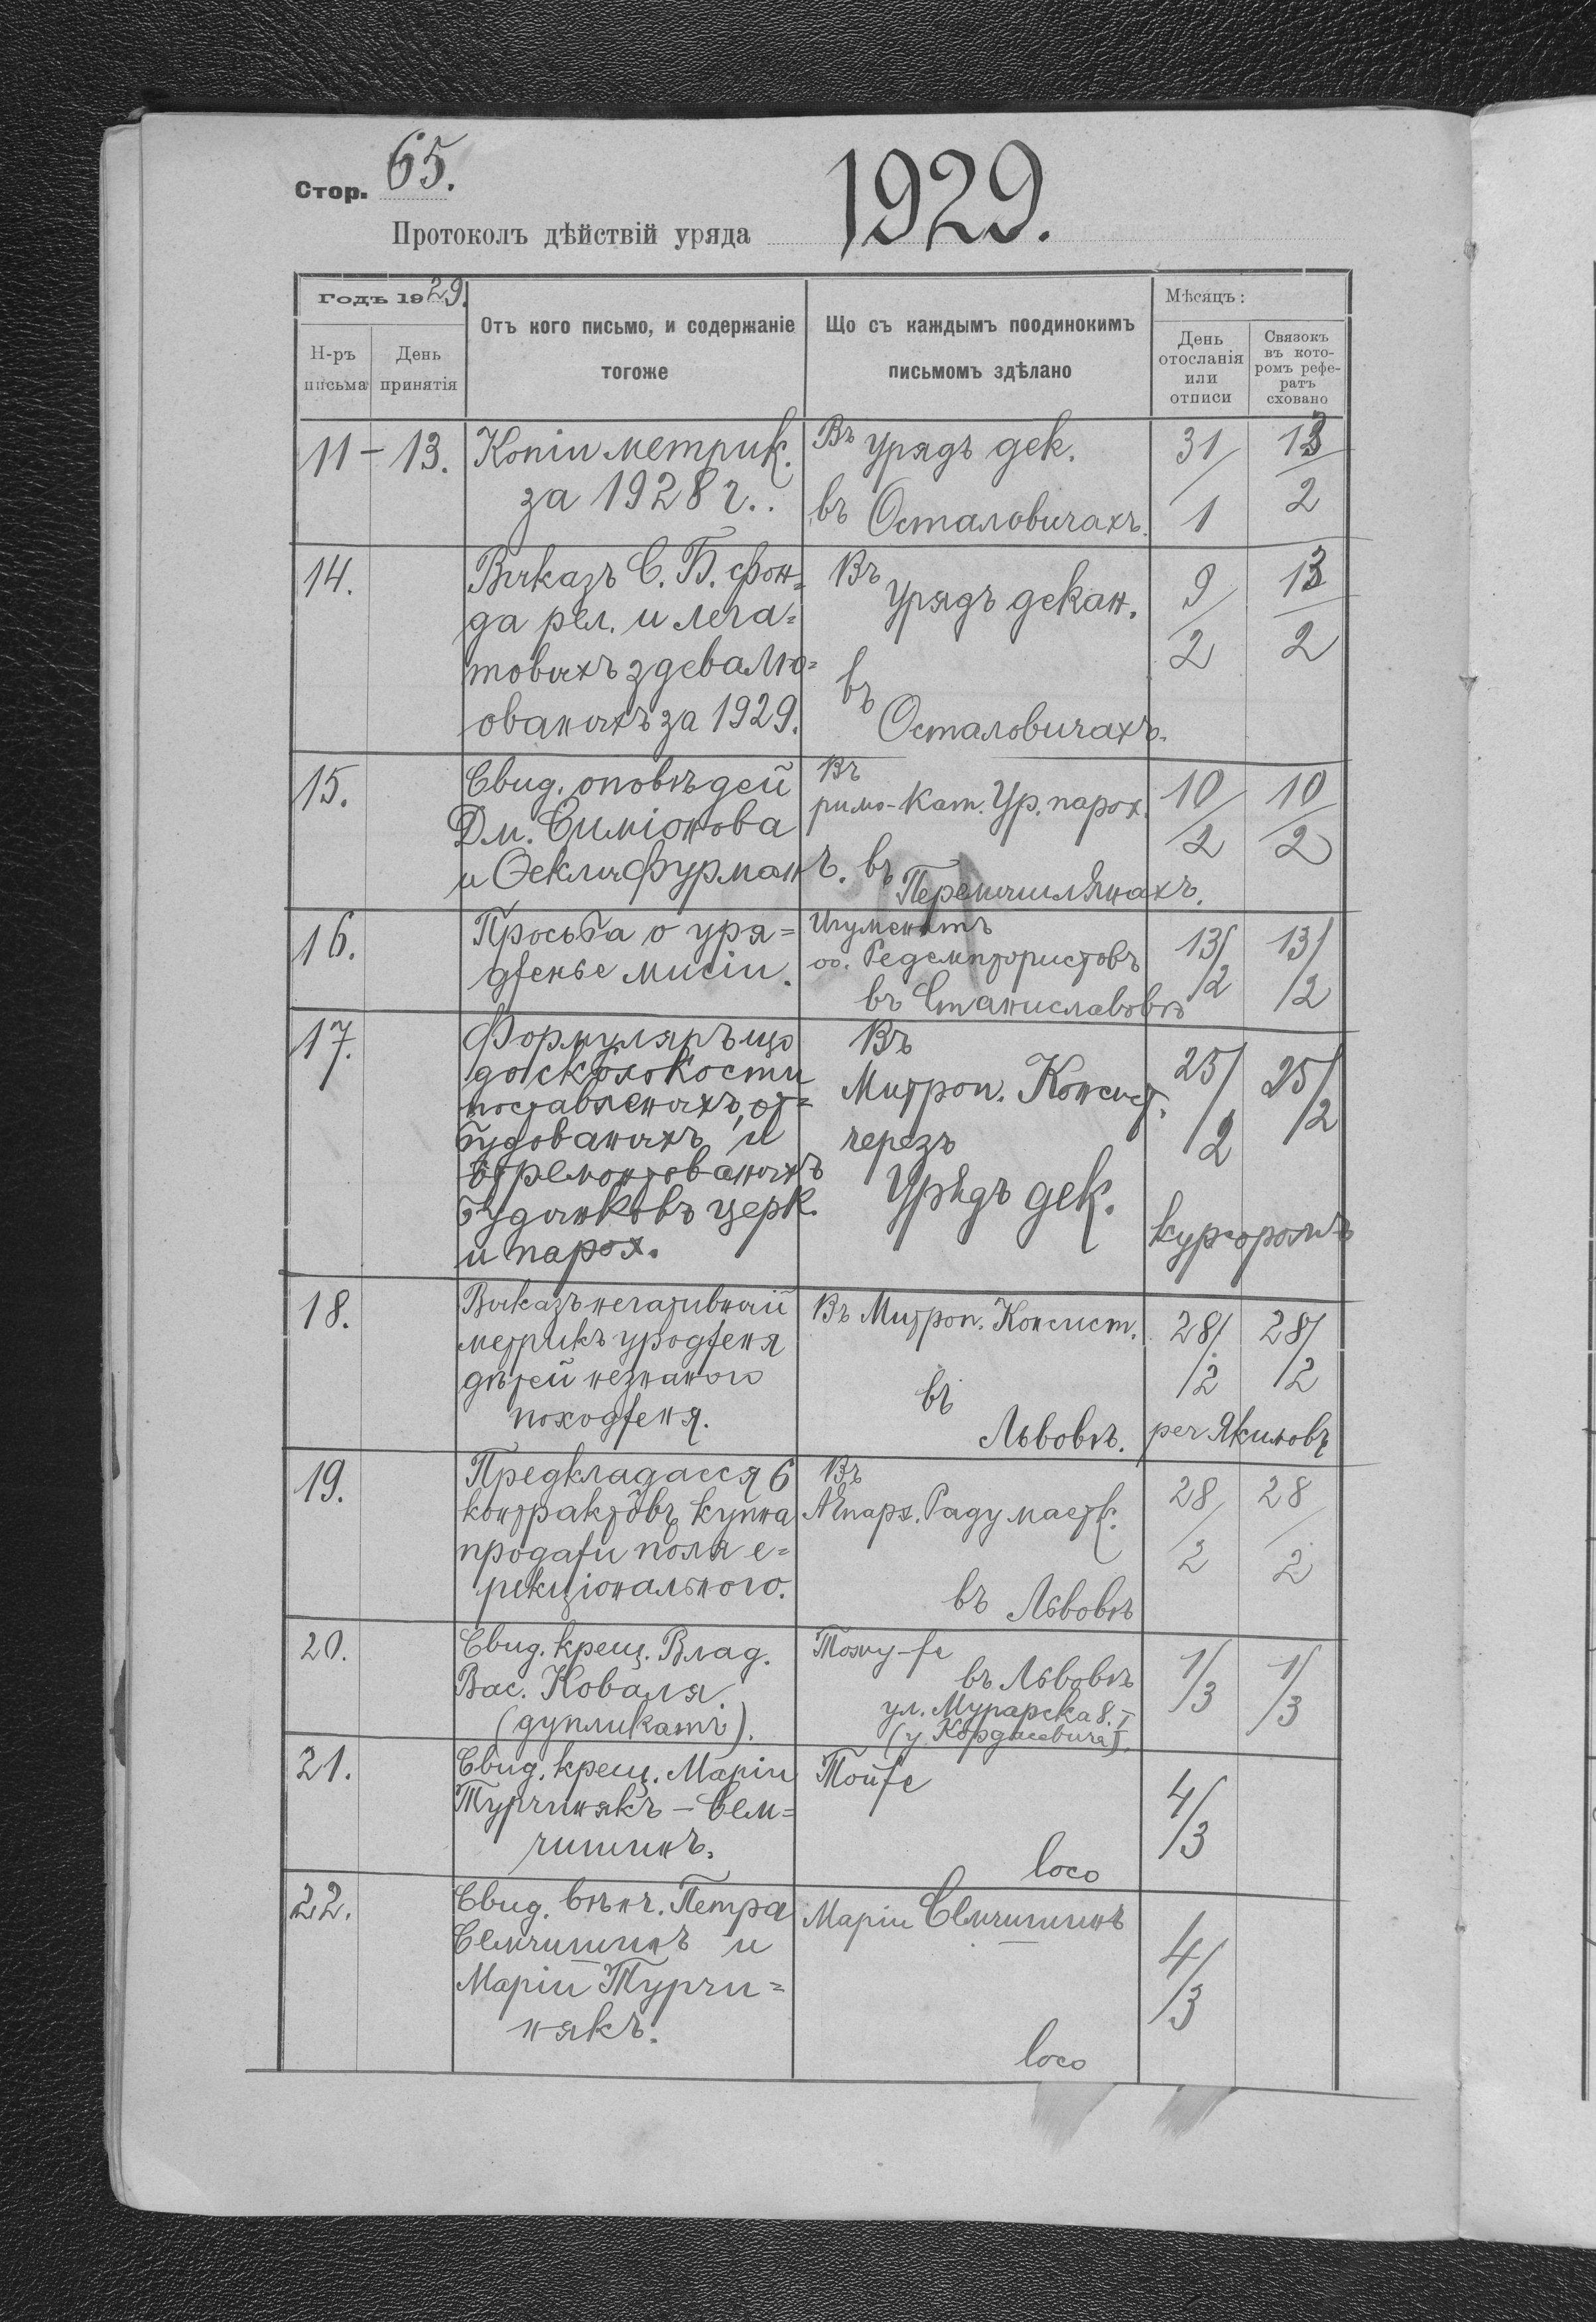 Стор. 65.
1929.
Протоколъ дѣйствій уряда
Годъ 1929.
Н-ръ письма
День принятія
Отъ кого письмо, и содержаніе
тогоже
Що съ каждымъ поодинокимъ
письмомъ здѣлано
Мѣсяцъ:
День
отосланія
или
отписи
Связокъ
въ кото-
ромъ рефе-
ратъ
сховано
11 – 13.
Копіи метрик.
за 1928 г..
Въ урядъ дек.
въ Осталовичахъ.
31/1
13/2
14.
Выказъ С. Б. фон=
да рел. и лега=
товыхъ здевалю=
ованыхъ за 1929.
Въ
урядъ декан.
въ
Осталовичахъ.
9/2
13/2
15.
Свид. оповѣдей
Дм. Симіонова
и Ѳеклы Фурманъ.
Въ
римо-кат. Ур. парох.
въ
Перемышлянахъ.
10/2
10/2
16.
Просьба о уря=
дженьє мисіи.
Игуменатъ
оо. Редемптористовъ
въ Станиславовѣ
13/2
13/2
17.
Формуляръ що
до скількости
поставленыхъ, от=
будованыхъ и
отремонтованыхъ
будынковъ церк.
и парох.
Въ
Митроп. Консист.
черезъ
Урядъ дек.
25/2
25/2
курсоромъ
18.
Выказъ негативный
метрикъ уродженя
дѣтей незнаного
походженя.
Въ Митроп. Консист.
въ
Львовѣ.
28/2
28/2
рег Якимовъ
19.
Предкладаєся 6
контрактôвъ купна
продажи поля е=
рекціонального.
Въ
Аепарх. Раду маетк.
въ Львовѣ
28/2
28/2
20.
Свид. крещ. Влад.
Вас. Коваля.
(дупликатъ).
Тому-же
въ Львовѣ
ул. Мурарска 8. I
(у Кордасевича).
1/3
1/3
21.
Свид. крещ. Маріи
Турчинякъ – Сем=
чишинъ.
Тойже
loco
4/3
22.
Свид. вѣнч. Петра
Семчишинъ и
Маріи Турчи=
някъ.
Маріи Семчишинъ
loco
4/3